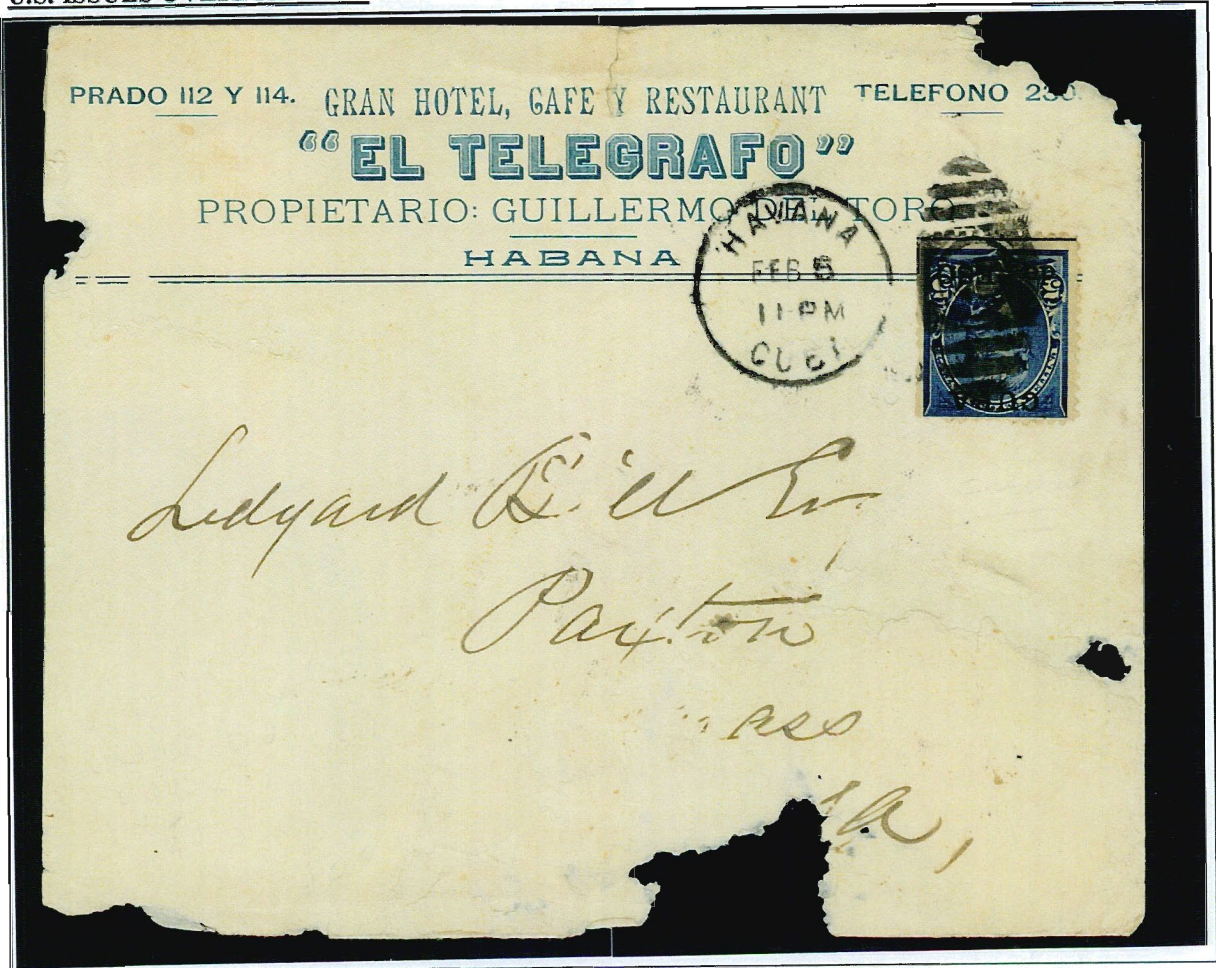 PRADO 112 Y 114. GRAN HOTEL, CAFE Y RESTAURANT TELEFONO
"EL TELEGRAFO"
PROPIETARIO: GUILLERMO DEL TORO
HABANA
HAVANA
FEB 5
11-PM
CUBA
Ledyard Bill Esq.
Paxton
ass